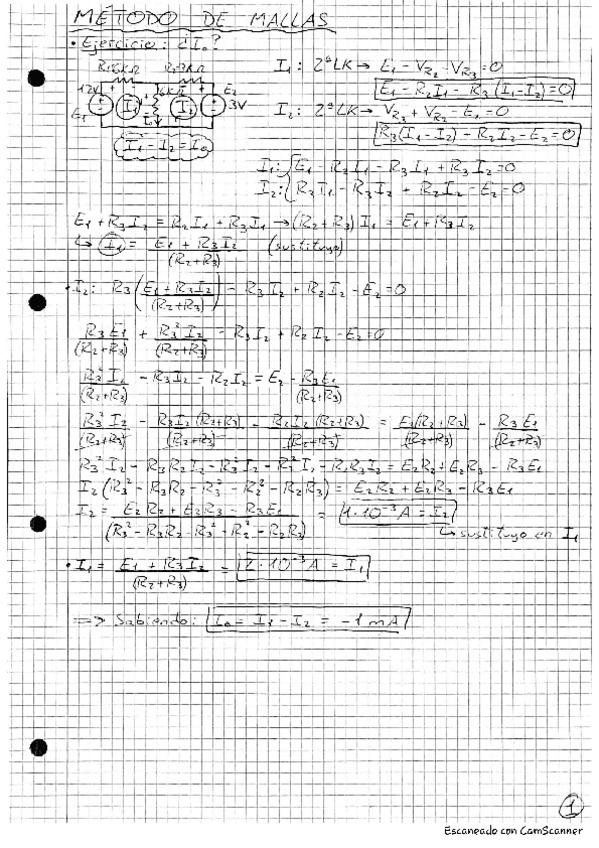 MÉTODO DE MALLAS
• Ejercicio: ¿I₀?
I₁: 2ª LK → E₁ - V_R₂ - V_R₃ = 0
E₁ - R₂I₁ - R₃(I₁-I₂) = 0
12V
6kΩ
E₂
3V
E₁
I₁
I₂
I₀
I₁ - I₂ = I₀
I₂: 2ª LK →
R₃(I₁-I₂) - R₂I₂ - E₂ = 0
I₁: { E₁ - R₂I₁ - R₃I₁ + R₃I₂ = 0
I₂: { R₃I₁ - R₃I₂ + R₂I₂ - E₂ = 0
E₁ + R₃I₂ = R₂I₁ + R₃I₁ → (R₂+R₃)I₁ = E₁ + R₃I₂
↳ I₁ = (E₁ + R₃I₂)/(R₂+R₃) (sustituyo)
• I₂: R₃((E₁ + R₃I₂)/(R₂+R₃)) - R₃I₂ + R₂I₂ - E₂ = 0
R₃E₁/(R₂+R₃) + R₃²I₂/(R₂+R₃) - R₃I₂ + R₂I₂ - E₂ = 0
R₃²I₂/(R₂+R₃) - R₃I₂ - R₂I₂ = E₂ - R₃E₁/(R₂+R₃)
R₃²I₂/(R₂+R₃) - R₃I₂(R₂+R₃)/(R₂+R₃) - R₂I₂(R₂+R₃)/(R₂+R₃) = E₂(R₂+R₃)/(R₂+R₃) - R₃E₁/(R₂+R₃)
R₃²I₂ - R₃R₂I₂ - R₃²I₂ - R₂²I₂ - R₂R₃I₂ = E₂R₂ + E₂R₃ - R₃E₁
I₂(R₃² - R₃R₂ - R₃² - R₂² - R₂R₃) = E₂R₂ + E₂R₃ - R₃E₁
I₂ = (E₂R₂ + E₂R₃ - R₃E₁)/(R₃² - R₃R₂ - R₃² - R₂² - R₂R₃) = 1·10⁻³A = I₂
↳ sustituyo en I₁
• I₁ = (E₁ + R₃I₂)/(R₂+R₃) = 2·10⁻³A = I₁
=> Sabiendo: I₀ = I₁ - I₂ = -1 mA
1
Escaneado con CamScanner